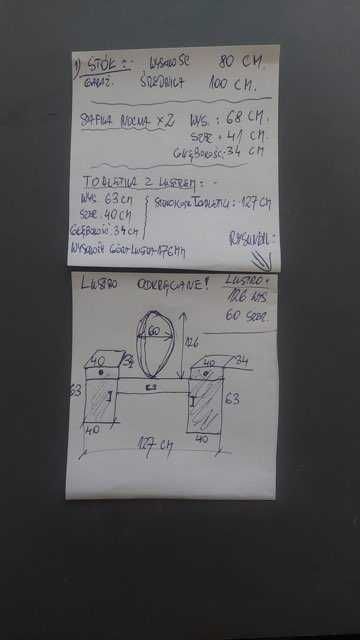 1) STÓŁ:- WYSOKOŚĆ 80 CM.
GARAŻ. ŚREDNICA 100 CM.
SZAFKA NOCNA x2 WYS. : 68 CM.
SZER. 41 CM.
GŁĘBOKOŚĆ: 34 CM
TOALETKA Z LUSTREM: -
WYS. 63 CM
SZER. 40 CM
GŁĘBOKOŚĆ. 34 CM
SZEROKOŚĆ TOALETKI: 127 CM
WYSOKOŚĆ GÓRA LUSTRA 176 CM
RYSUNEK:
LUSTRO ODKRĘCANE!
LUSTRO:
126 WYS.
60 SZER.
60
126
40 34
40 34
63
63
40
40
127 CM